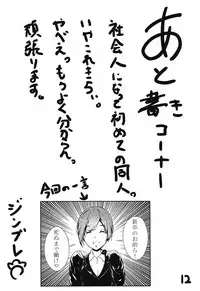 あと書きコーナー
社会人になって初めての同人。
いやこれきつい。
やべえ。もっとよく分からん。
頑張ります。
今回の一言
新卒のお前ら!
死ぬまで働けや
ジンブレ
12